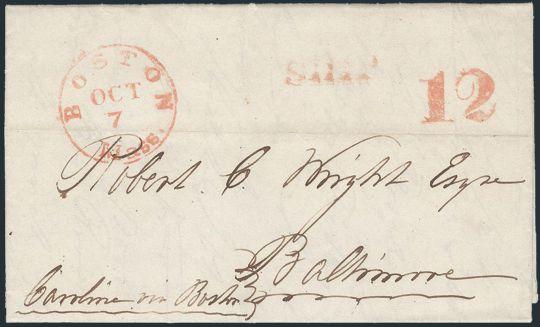 BOSTON
OCT
7
Mass.
SHIP
12
Robert C. Wright Esqr
Baltimore
Caroline via Boston